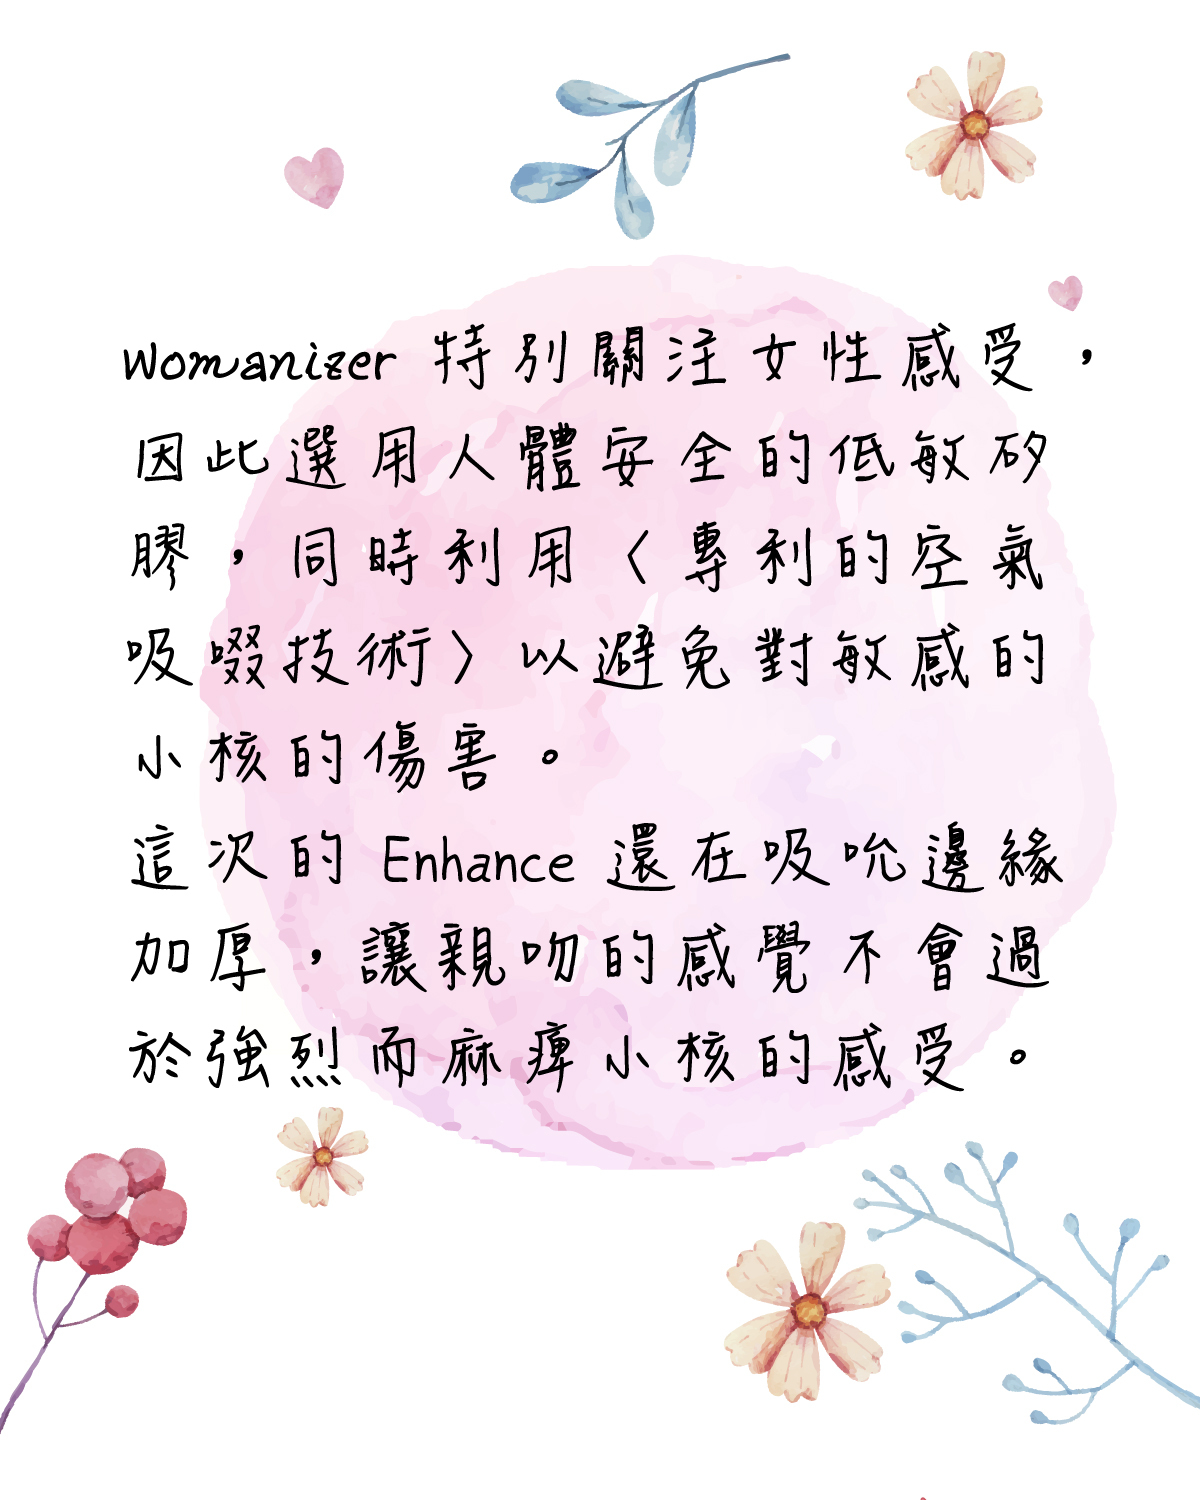 womanizer 特別關注女性感受，
因此選用人體安全的低敏矽
膠，同時利用〈專利的空氣
吸啜技術〉以避免對敏感的
小核的傷害。
這次的 Enhance 還在吸吮邊緣
加厚，讓親吻的感覺不會過
於強烈而麻痺小核的感受。